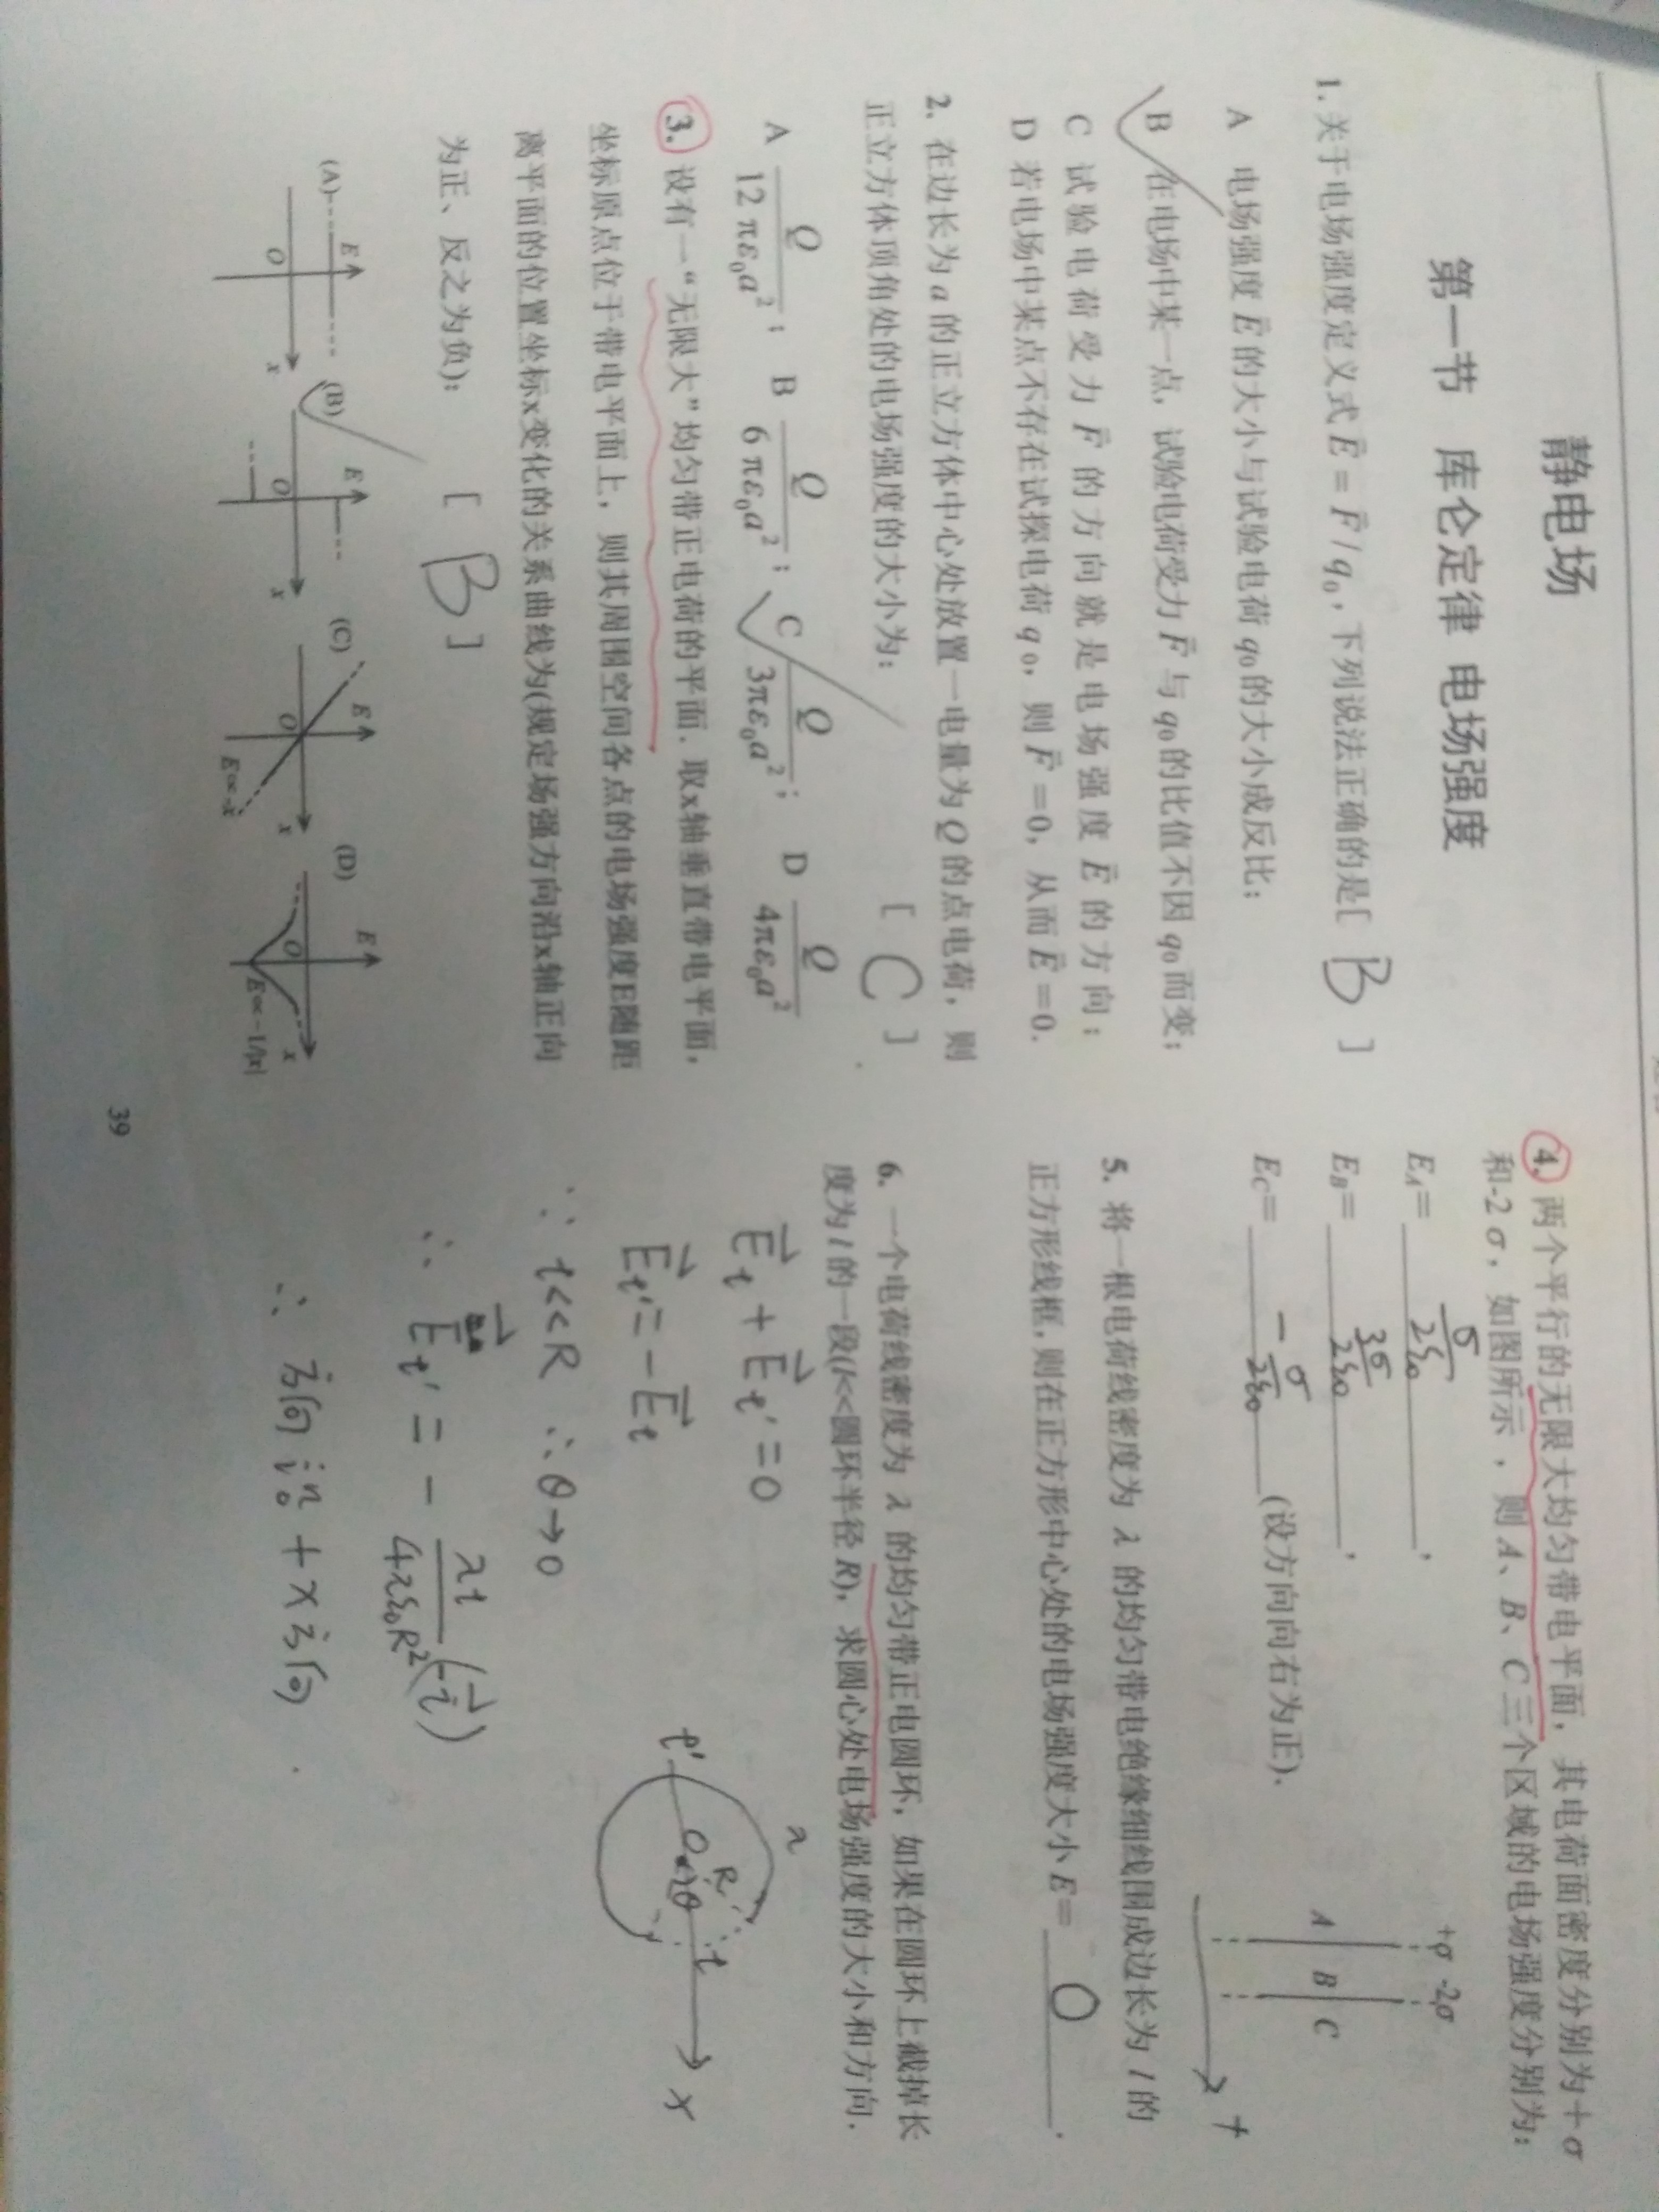 静电场
第一节 库仑定律 电场强度
1. 关于电场强度定义式 E⃗ = F⃗ / q₀，下列说法正确的是[ B ]
A 电场强度 E⃗ 的大小与试验电荷 q₀ 的大小成反比；
B 在电场中某一点，试验电荷受力 F⃗ 与 q₀ 的比值不因 q₀ 而变；
C 试验电荷受力 F⃗ 的方向就是电场强度 E⃗ 的方向；
D 若电场中某点不存在试探电荷 q₀，则 F⃗ =0，从而 E⃗ =0.
2. 在边长为 a 的正立方体中心处放置一电量为 Q 的点电荷，则
正立方体顶角处的电场强度的大小为：
[ C ]
A Q/(12πε₀a²)； B Q/(6πε₀a²)； C Q/(3πε₀a²)； D Q/(4πε₀a²)
3. 设有一“无限大”均匀带正电荷的平面. 取x轴垂直带电平面，
坐标原点位于带电平面上，则其周围空间各点的电场强度E随距
离平面的位置坐标x变化的关系曲线为(规定场强方向沿x轴正向
为正、反之为负)：
[ B ]
(A) E O x (B) E O x (C) E O x E∝-x (D) E O x E∝-1/|x|
39
4. 两个平行的无限大均匀带电平面，其电荷面密度分别为＋σ
和-2σ，如图所示，则 A、B、C 三个区域的电场强度分别为：
E_A= σ/2ε₀ ，
E_B= 3σ/2ε₀ ，
E_C= -σ/2ε₀ (设方向向右为正).
+σ -2σ
A B C
+
5. 将一根电荷线密度为 λ 的均匀带电绝缘细线围成边长为 l 的
正方形线框，则在正方形中心处的电场强度大小 E＝ 0 .
6. 一个电荷线密度为 λ 的均匀带正电圆环，如果在圆环上截掉长
度为 l 的一段(l<<圆环半径 R)，求圆心处电场强度的大小和方向.
E⃗ₗ + E⃗ₗ' = 0
E⃗ₗ' = - E⃗ₗ
∵ l<<R ∴ θ→0
∴ E⃗ₗ' = - λl/(4πε₀R²) (-i⃗)
λ
l' O R θ l x